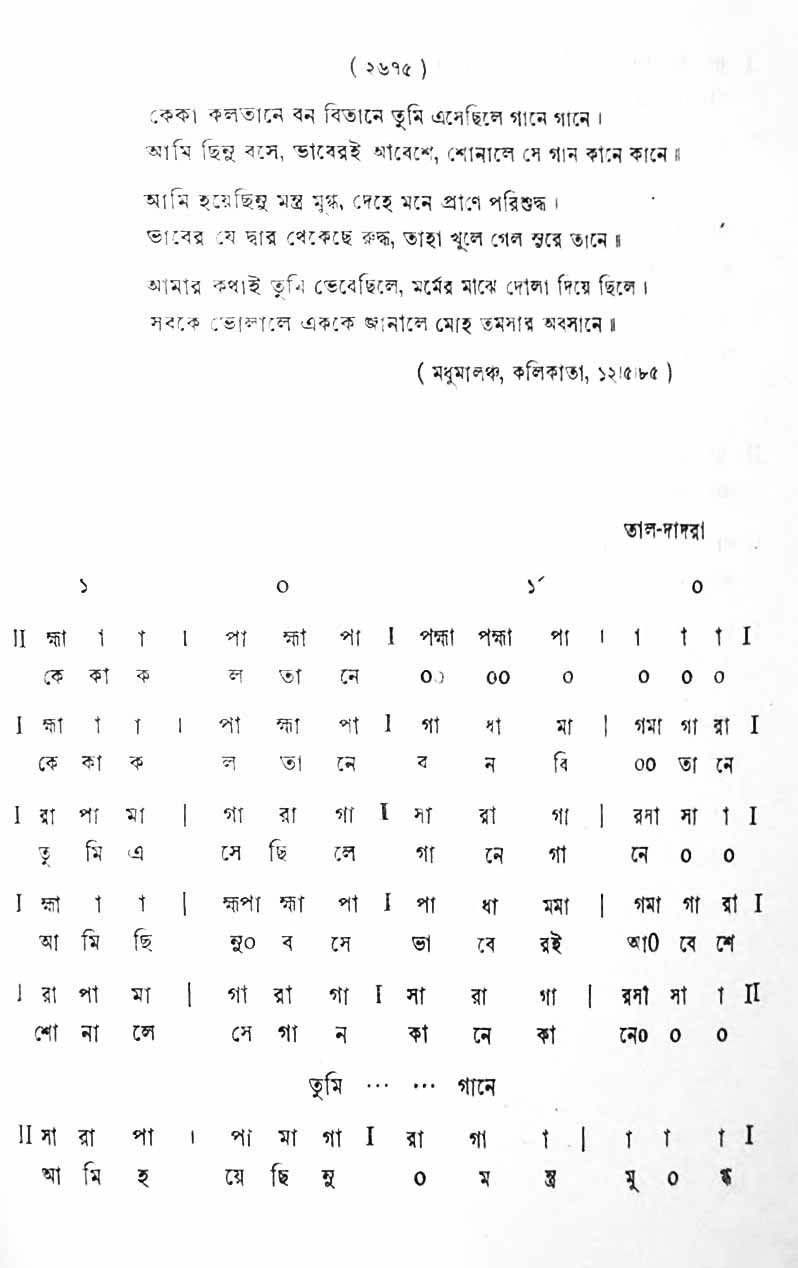 ( ২৬৭৫ )
কেকা কলতানে বন বিতানে তুমি এসেছিলে গানে গানে ।
আমি ছিনু বসে, ভাবেরই আবেশে, শোনালে সে গান কানে কানে ॥
আমি হয়েছিনু মন্ত্র মুগ্ধ, দেহে মনে প্রাণে পরিশুদ্ধ ।
ভাবের যে দ্বার থেকেছে রুদ্ধ, তাহা খুলে গেল সুরে তানে ॥
আমার কথাই তুমি ভেবেছিলে, মর্মের মাঝে দোলা দিয়ে ছিলে ।
সবকে ভোলালে এককে জানালে মোহ তমসার অবসানে ॥
( মধুমালঞ্চ, কলিকাতা, ১২।৫।৮৫ )
তাল-দাদরা
১ ০ ১´ ০
II হ্মা া া । পা হ্মা পা I পহ্মা পহ্মা পা । া া া I
কে কা ক ল তা নে ০০ ০০ ০ ০ ০ ০
I হ্মা া া । পা হ্মা পা I গা ধা মা | গমা গা রা I
কে কা ক ল তা নে ব ন বি ০০ তা নে
I রা পা মা | গা রা গা I সা রা গা | রসা সা া I
তু মি এ সে ছি লে গা নে গা নে ০ ০
I হ্মা া া | হ্মপা হ্মা পা I পা ধা মমা | গমা গা রা I
আ মি ছি নু০ ব সে ভা বে রই আ০ বে শে
I রা পা মা | গা রা গা I সা রা গা | রসা সা া II
শো না লে সে গা ন কা নে কা নে০ ০ ০
তুমি ··· ··· গানে
II সা রা পা । পা মা গা I রা গা া | া া া I
আ মি হ য়ে ছি নু ০ ম ন্ত্র মু ০ গ্ধ